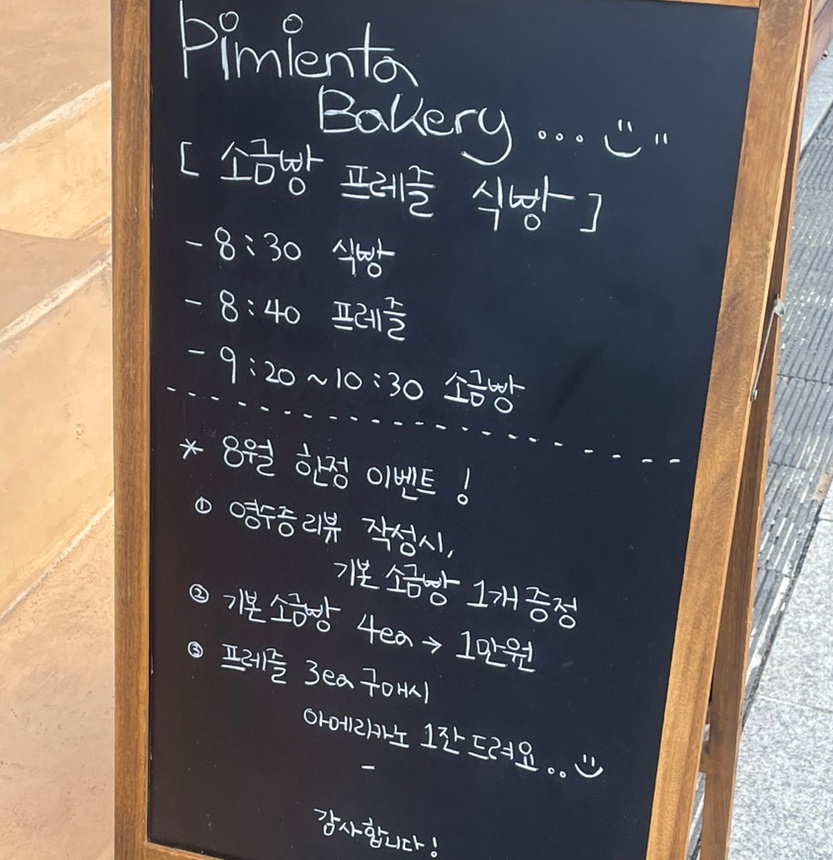 Pimienta
Bakery ... :) "
[ 소금빵 프레즐 식빵 ]
- 8:30 식빵
- 8:40 프레즐
- 9:20~10:30 소금빵
* 8월 한정 이벤트 !
① 영수증리뷰 작성시,
기본 소금빵 1개 증정
② 기본 소금빵 4ea → 1만원
③ 프레즐 3ea 구매시
아메리카노 1잔 드려요.. :)
-
감사합니다!